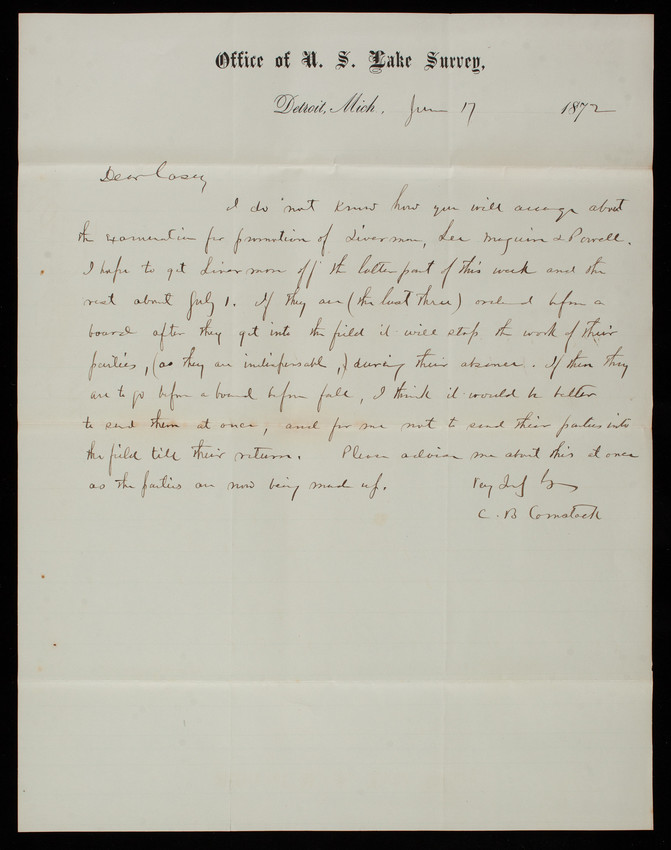 Office of U. S. Lake Survey,
Detroit, Mich. June 17 1872
Dear Casey
I do not know how you will arrange about
the examination for promotion of Livermore, Lee Maguire & Powell.
I hope to get Livermore off the latter part of this week and the
rest about July 1. If they are (the last three) ordered before a
board after they get into the field it will stop the work of their
parties, (as they are indispensable,) during their absence. If then they
are to go before a board before fall, I think it would be better
to send them at once, and for me not to send their parties into
the field till their return. Please advise me about this at once
as the parties are now being made up. Very
C. B Comstock